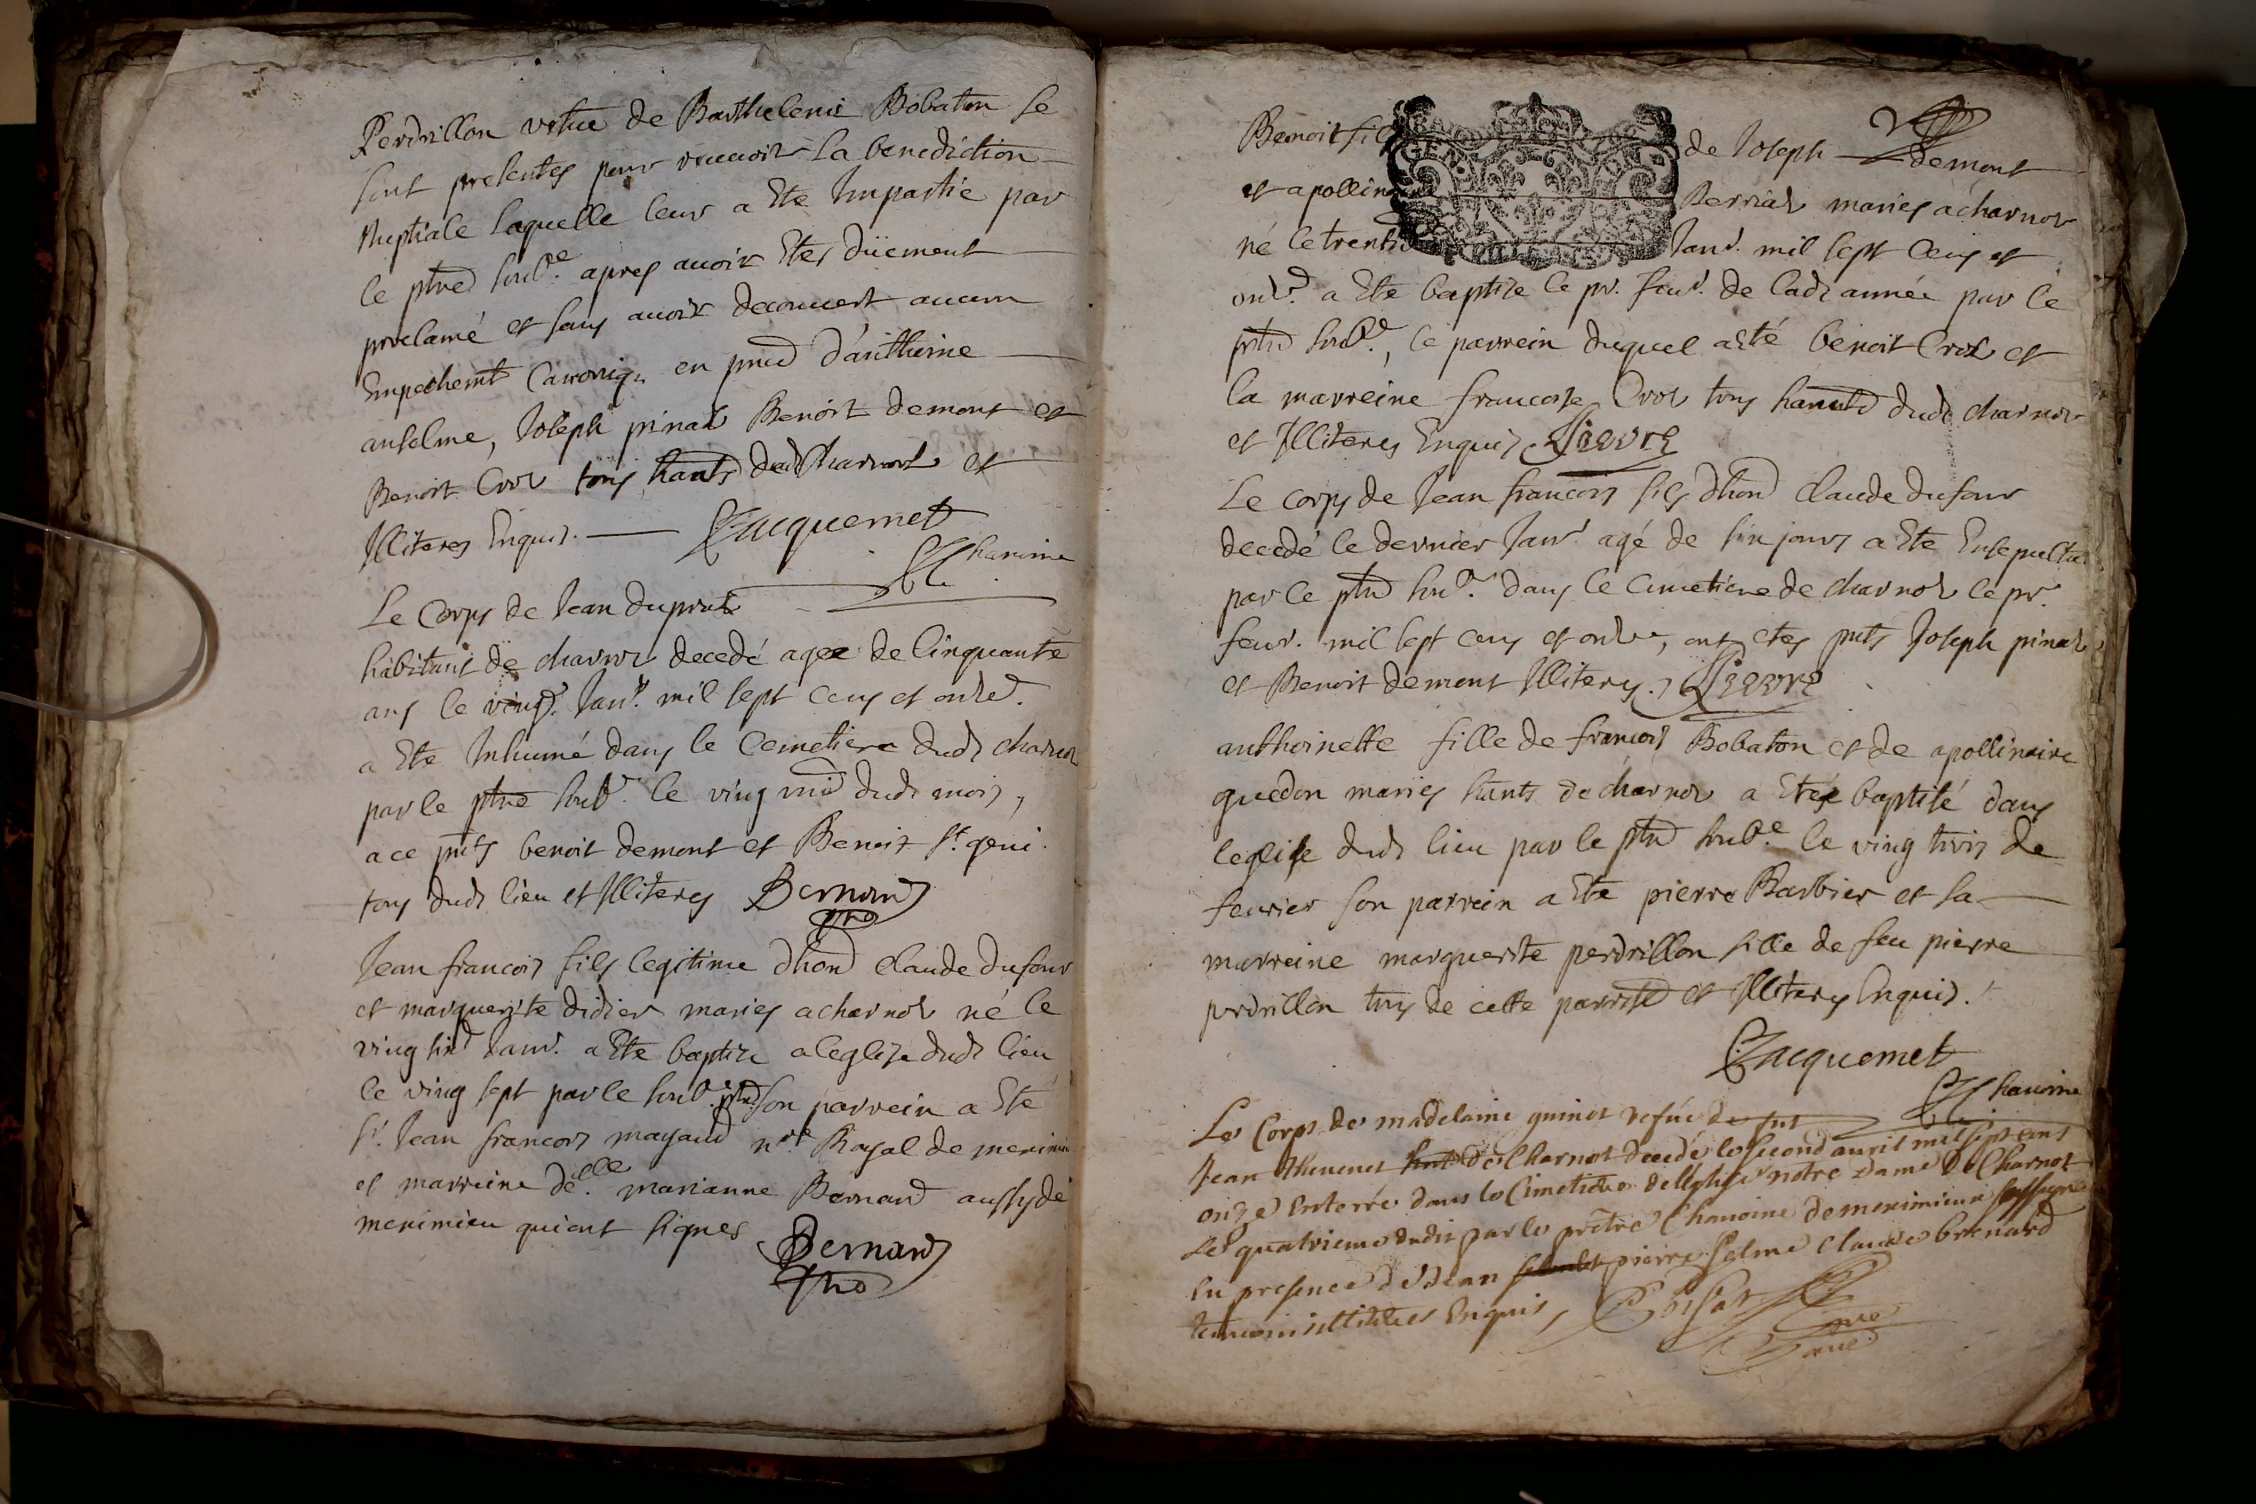 Perdrillon vefue de Barthelemi Bobaton se
sont presentés pour receuoir la benediction
Nuptiale laquelle leur a Eté Impartie par
le ptre soub.e apres auoir Etés düement
proclamé et sans auoir decouuert aucun
Empechemt Canoniq. en pnce d'anthelme
anselme, Joseph pinat Benoit demont et
Benoit Crot tous hants dud Charnot et
Illiteres Enquis. Jacquemet
Chanoine
Le Corps de Jean duprat
habitant de charnot decedé agee de Cinquante
ans le ving.e Janv. mil sept cens et onze.
a Eté Inhumé dans le Cemetiere dudt charnot
par le ptre soub. le ving un dudt mois,
a ce pnts benoit demont et Benoit st geni.
tous dudt lieu et Illiteres Bernard
ptre
Jean francois fils legitime dhon Claude dufour
et marguerite didier mariés a charnot né le
ving six Janv. a Eté baptizé a leglize dudt lieu
le ving sept par le soub. ptre son parrein a Eté
sr. Jean francois mayaud nre Royal de meximieu
et marreine delle. marianne Bernard aussy de
meximieu qui ont signes Bernard
ptre
Benoit fils de Joseph demont
et apollinaire Berriat mariés a charnot
né le trentie Janv. mil sept cens et
onze. a Eté baptize le pr. feuv. de ladt année par le
ptre soub.e, le parrein duquel a eté benoit Crot et
la marreine francoise Crot tous hants dudt charnot
et Illiteres Enquis Lievre
Le corps de Jean francois fils dhon Claude dufour
decedé le dernier Janv. agé de six jours a Eté Ensepulturé
par le ptre soub.e dans le cimetiere de charnot le pr.
feuv. mil sept cens et onze, ont etes pnts Joseph pinat
et Benoit demont Illiteres. Lievre
anthoinette fille de francois Bobaton et de apollinaire
guedon mariés hants de charnot a Etée baptisé dans
leglise dudt lieu par le ptre soub.e le ving trois de
feurier son parrein a Eté pierre Barbier et sa
marreine marguerite perdrillon fille de feu pierre
perdrillon tous de cette parroisse et Illiteres Enquis.
Jacquemet
Chanoine
Le Corps de madelaine guinet vefue de fut
Jean Thevenet hnt de Charnot decedé le second auril mil sept cens
onze Enterrée dans le Cimetiere de leglise notre dame de Charnot
le quatrieme dudit par le prêtre Chanoine de meximieux soussigné
En presence de Jean pierre selme claude brenard
temoins illiteres Enquis,